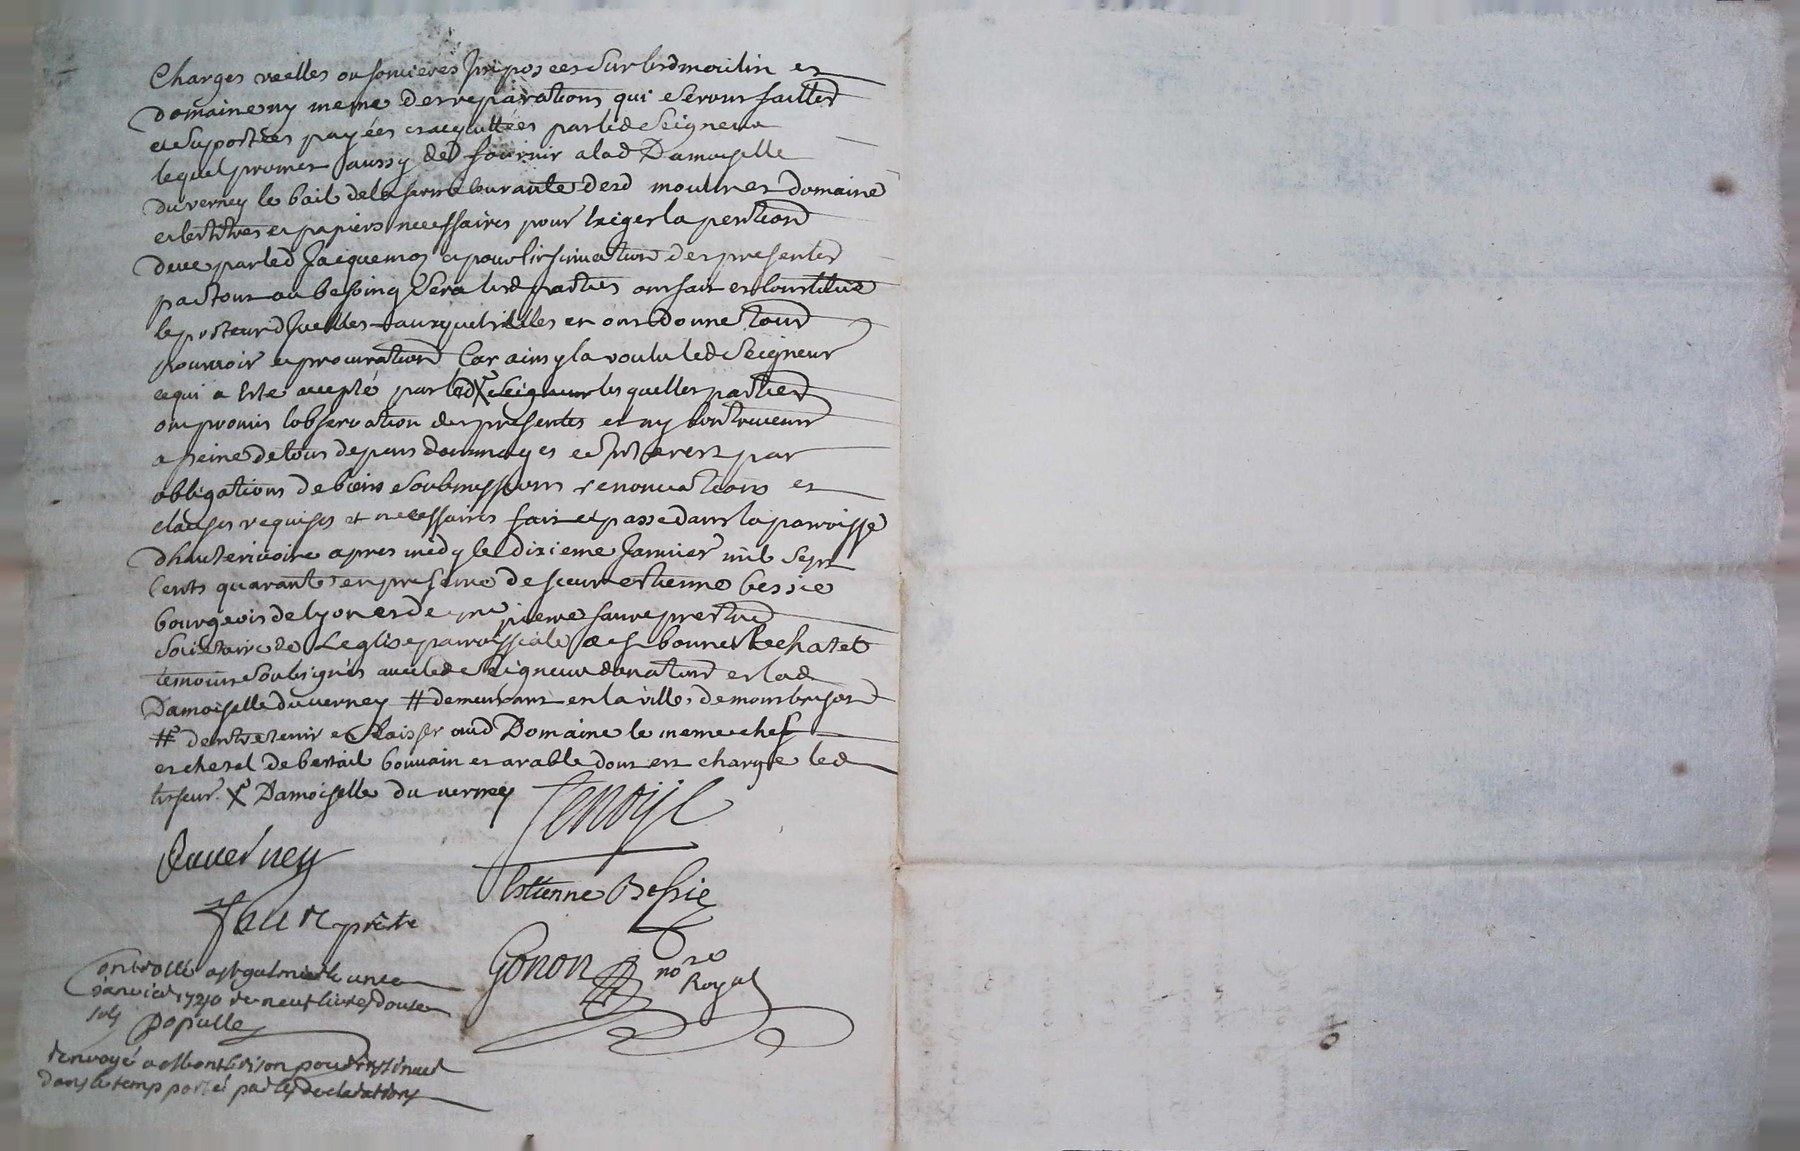 Charges reelles ou foncieres Imposees sur lesd moulin et
domaine ny meme des reparations qui seront faittes
et suportées payées et acquittées par led Seigneur
lequel promet aussy de fournir a lad Damoiselle
du verney le bail de la ferme courante desd moulin et domaine
et les titres et papiers necessaires pour Exiger la pention
deue par led Jacquemon et pour linsinuation des presentes
partout ou besoing sera lesd parties ont fait et constitué
le porteur dJcelles auxquel Elles en ont donne tout
pouvoir et procuration Car ainsy la voulu led Seigneur
et qui a Esté accepté par lad X Seigneur lesquelles parties
ont promis lobservation des presentes et ny contrevenir
a peine de tous depens dommages et Jnterests par
obligations de biens soubmissions renonciations et
clauses requises et necessaires fait et passé dans la parroisse
dhauterivoire apres midy le dixieme Janvier mil sept
Cents quarante en presence de sieur estienne bessie
bourgeois de lyon et de me pierre faure prestre
Societaire de Leglise parroissiale de st bonnet le chatel
temoins soubsignés avec led Seigneur donateur et lad
Damoiselle du verney # demeurant en la ville de montbrison
# dentretenir et laisser aud Domaine le meme chef
et chetel de bestail bouvain et arable dont est chargé led
X Damoiselle du verney
Duverney
Estienne Bessie
Faure prêtre
Gonon nore
Royal
Controllé a st galmier le unze
janvier 1740 re neuf livres douze
sols Populle
Renvoyé a Montbrison pour Insinuer
dans le temp porté par les declarations